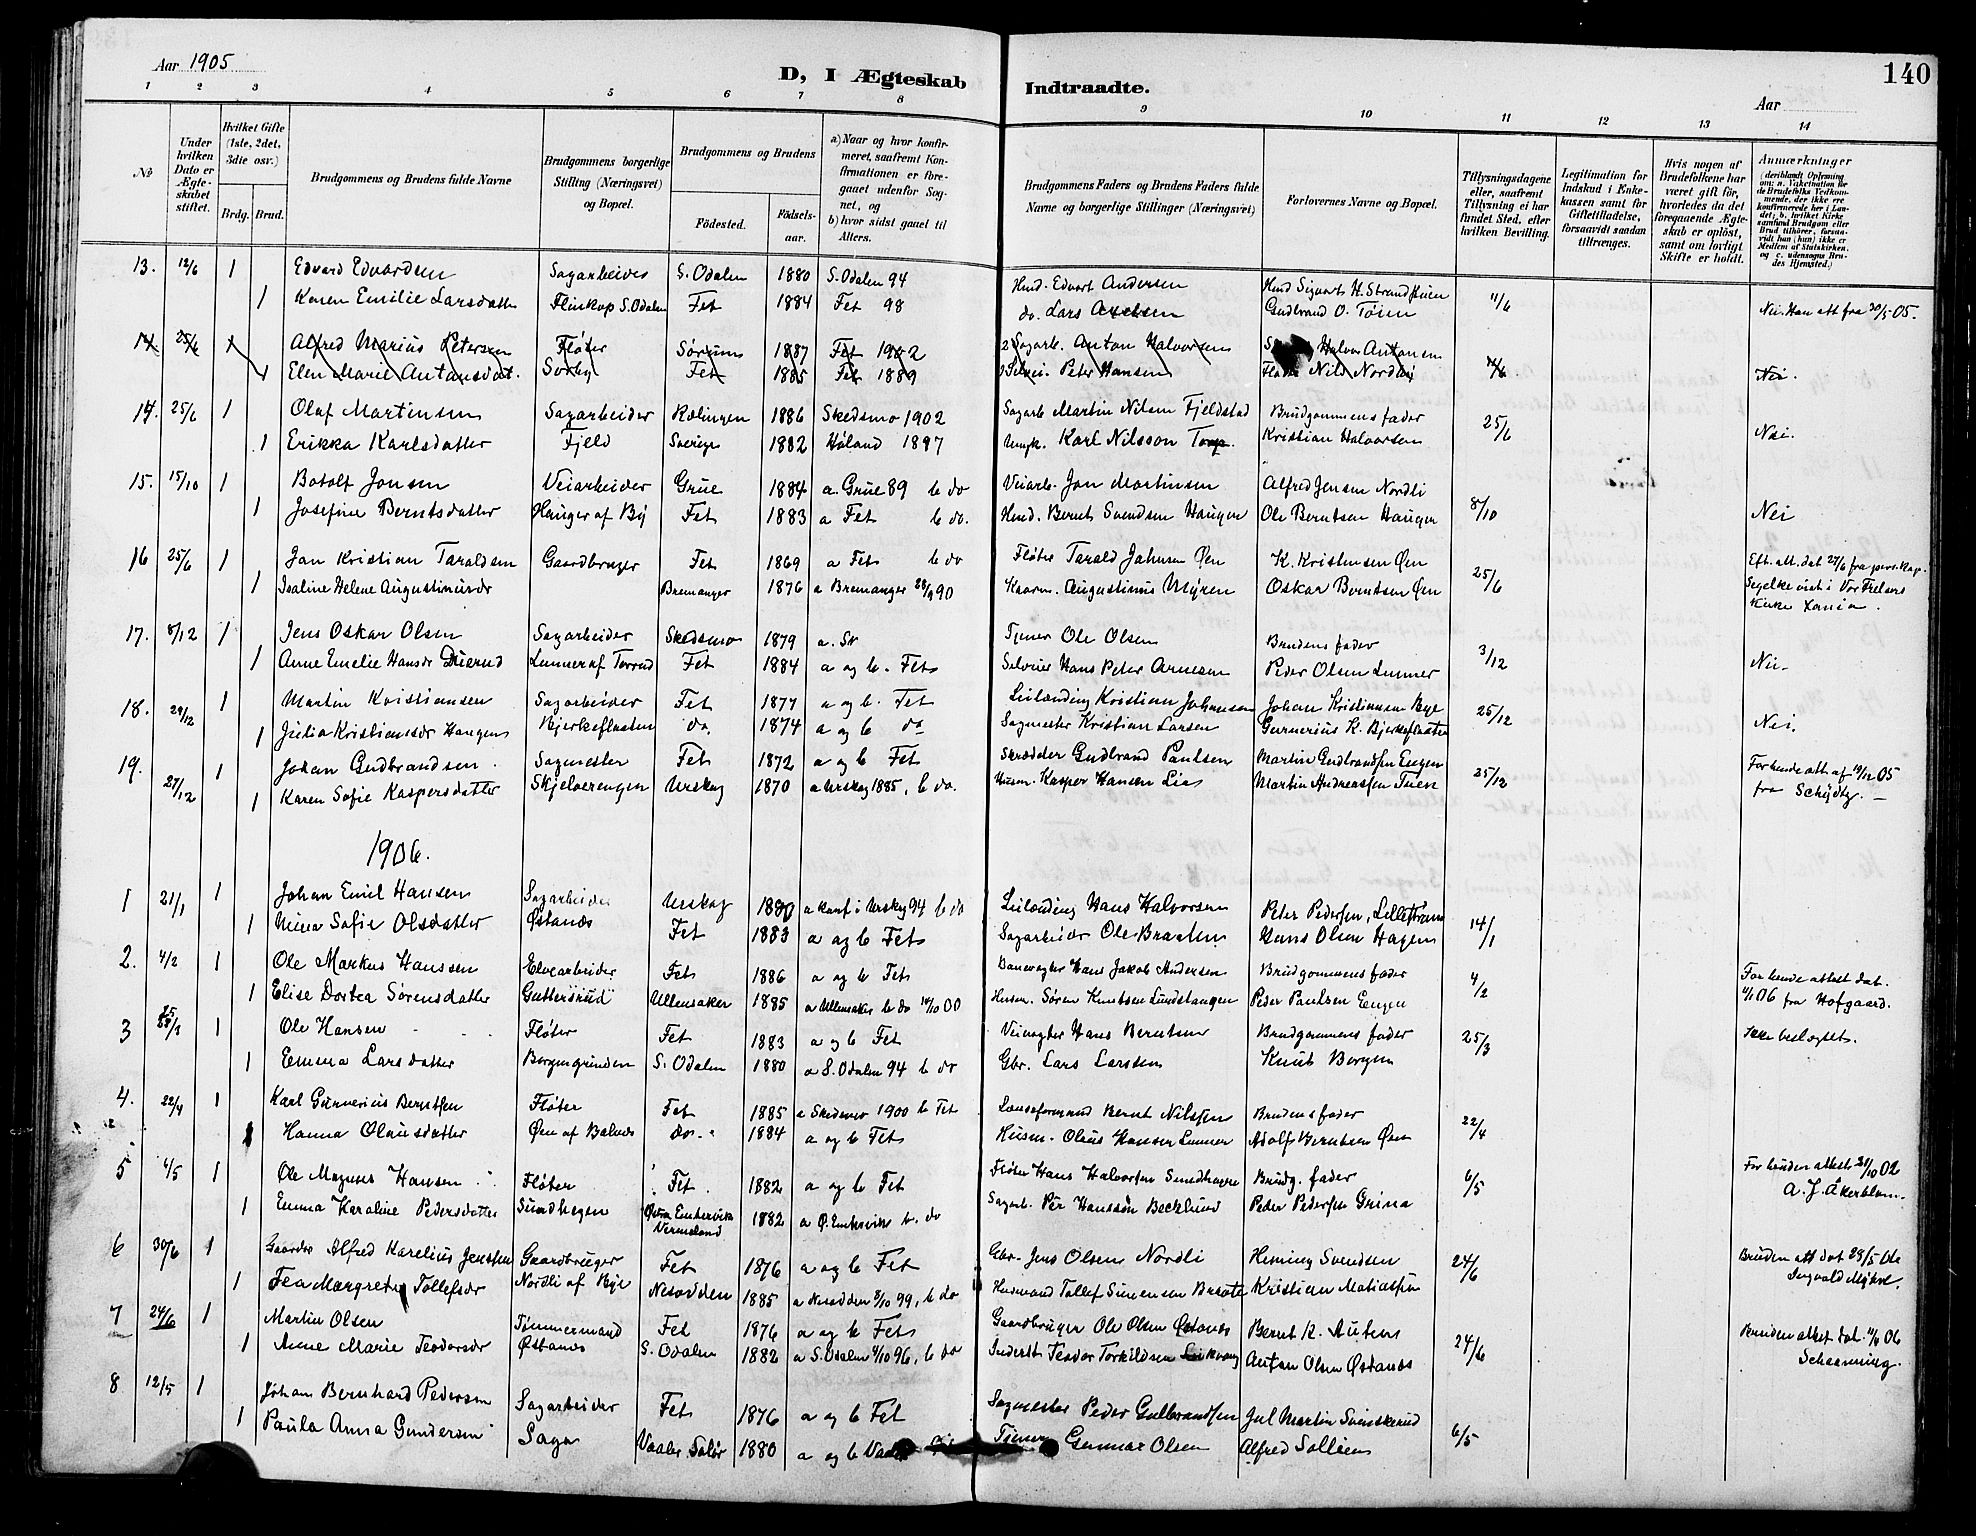 Aar 1905
D, I Ægteskab Indtraadte.
140
Aar
1 2 3 4 5 6 7 8 9 10 11 12 13 14
№
Under hvilken Dato er Ægteskabet stiftet.
Hvilket Gifte (1ste, 2det, 3die osv.)
Brdg. Brud.
Brudgommens og Brudens fulde Navne
Brudgommens borgerlige Stilling (Næringsvei) og Bopæl.
Brudgommens og Brudens
Fødested.
Fødselsaar.
a) Naar og hvor konfirmeret, saafremt Konfirmationen er foregaaet udenfor Sognet, og
b) hvor sidst gaaet til Alters.
Brudgommens Faders og Brudens Faders fulde Navne og borgerlige Stillinger (Næringsvei)
Forlovernes Navne og Bopæl.
Tillysningsdagene eller, saafremt Tillysning ei har fundet Sted, efter hvilken Bevilling.
Legitimation for Indskud i Enkekassen samt for Giftetilladelse, forsaavidt saadan tiltrænges.
Hvis nogen af Brudefolkene har været gift før, hvorledes da det foregaaende Ægteskab er opløst, samt om lovligt Skifte er holdt.
Anmærkninger (deriblandt Oplysning om: a. Vakcination for de Brudefolks Vedkommende, der ikke ere konfirmerede her i Landet; b. hvilket Kirkesamfund Brudgom eller Brud tilhører, forsaavidt han (hun) ikke er Medlem af Statskirken. og c. udensogns Brudes Hjemsted.)
13. 12/6 1 Edvard Edvardsen Sagarbeider S. Odalen 1880 S. Odalen 94 Hmd. Edvart Andersen Hmd Sigvart H. Strand
1 Karen Emilie Larsdatter S. Odalen Fet 1884 Fet 98 do. Lars Gudbrand O. Tøien 11/6 Nei. Han att fra 30/5 05.
14. 25/6 1 Alfred Marius Petersen Fløter Sørum 1887 Fet 1902 Sagarb. Anton Halvorsen Halvor Antonsen
1 Elen Marie Antonsdat. Fet 1885 Fet 1889 Peter Hansen Nils Nordli Nei.
14. 25/6 1 Olaf Martinsen Sagarbeider Rælingen 1886 Skedsmo 1902 Sagarb Martin Nilsen Fjeldstad Brudgommens fader 25/6
1 Erikka Karlsdatter Fjeld Sverige 1882 Høland 1897 Karl Nilsson Torp. Kristian Halvorsen Nei.
15. 15/10 1 Botolf Jonsen Veiarbeider Grue 1884 a. Grue 89 b do Veiarb. Jon Martinsen Alfred Jensen Nordli
1 Josefine Berntsdatter Hauger af By Fet 1883 a Fet b do. Hmd. Bernt Svendsen Haugen Ole Berntsen Hauger 8/10 Nei
16 25/6 1 Jan Kristian Taraldsen Gaardbruger Fet 1869 a Fet b do Fløter Tarald Jahnsen Øen K. Kristensen Øen 25/6 Eft. att. dat 27/6 fra pers. Kap.
1 Isaline Helene Augustinusdr Bremanger 1876 a Bremanger 28/9 90 Augustinus Myren Oskar Berntsen Øen Segelke viet i Vor Frelsers
Kirke Xania.
17. 8/12 1 Jens Oskar Olsen Sagarbeider Skedsmo 1879 a. Sk Tjener Ole Olsen Brudens fader
1 Anne Emelie Hansdr Duerud Lunner af Torrud Fet 1884 a og b. Fet Selveier Hans Peter Arnesen Peder Olsen Lunner 3/12 Nei.
18. 29/12 1 Martin Kristiansen Sagarbeider Fet 1877 a og b. Fet Leilænding Kristian Johansen Johan Kristiansen Bye 25/12
1 Julia Kristiansdr Haugen Bjerkeflaaten do. 1874 a og b do Sagmester Kristian Larsen Gunerius K. Bjerkeflaaten Nei.
19. 27/12 1 Johan Gudbrandsen. Sagmester Fet 1872 a og b Fet Skrædder Gudbrand Paulsen Martin Gudbrandsen Engen 25/12 For hende att. af 19/12 05
1 Karen Sofie Kaspersdatter Skjelverengen Urskog 1870 a Urskog 1885, b do. Husm. Kasper Hansen Lia Martin Andreassen Tuen fra Schydtz. —
1906.
1 21/1 1 Johan Emil Hansen Sagarbeider Urskog 1880 a konf i Urskog 94 b do Leilænding Hans Halvorsen Peter Pedersen, Lillestrøm 14/1
1 Mina Sofie Olsdatter Østanes Fet 1883 a og b Fet Sagarbeider Ole Braaten Hans Olsen Hagen
2. 4/2 1 Ole Markus Hanssen Elvearbeider Fet 1886 a og b Fet Banevogter Hans Jakob Andersen Brudgommens fader 4/2 For hende attest dat.
1 Elise Dortea Sørensdatter Guttersrud Ullensaker 1885 a Ullensaker b do 14/10 00 Husm. Søren Knutsen Lundstangen Peder Paulsen Engen 4/1 06 fra Hofgaard.
3 25/3 1 Ole Hansen Fløter Fet 1883 a og b Fet Veivogter Hans Berntsen Brudgommens fader 25/3 Ikke beslægtet.
1 Emma Larsdatter Borgengrinden S. Odalen 1880 a S. Odalen 94 b do Gbr. Lars Larssen Knut Borgen
4. 22/4 1 Karl Gunnerius Berntsen Fløter Fet 1885 a Skedsmo 1900 b Fet Lænseformand Bernt Nilssen Brudens fader 22/4
1 Hanna Olausdatter Øen af Balnes do. 1884 a og b Fet Husm. Olaus Hansen Lunner Adolf Berntsen Øen
5 6/5 1 Ole Magnus Hansen Fløter Fet 1882 a og b Fet Fløter Hans Halvorsen Sundhagen Brudg. fader 6/5 For bruden attest 21/10 02
1 Emma Karoline Pedersdatter Sundhagen Østra Emtervik Vermeland 1882 a Ø. Emtervik b. do Sagarb. Per Hansson Becklund Peder Pedersen Grina A. J. Åkerblom.
6 30/6 1 Gaardbr Alfred Karelius Jenssen Gaardbruger Fet 1876 a og b Fet Gbr. Jens Olsen Nordli Heming Svendsen 24/6 Bruden att dat 29/5 06
1 Tea Margrethe Tollefsdr Nordli af Bye Nesodden 1885 a Nesodden 8/10 99, b do Husmand Tollef Simensen Braate Kristian Matiassen Ingvald Myhre.
7 24/6 1 Martin Olsen Tømmermand Fet 1876 a og b Fet Gaardbruger Ole Olsen Østanes Bernt K. Autens 24/6 Bruden attest dat. 11/6 06
1 Anne Marie Teodorsdr Østanes S. Odalen 1882 a S. Odalen 4/10 96, b do Inderst Teodor Torkildsen Anton Olsen Østanes Schaanning.
8 12/5 1 Johan Bernhard Pedersen Sagarbeider Fet 1876 a og b Fet Sagmester Peder Gulbrandsen Jul Martin Svinskerud 6/5
1 Paula Anna Gundersen Saga Vaaler Solør 1880 a og b Vaaler Tjener Gunnar Olsen Alfred Sollien